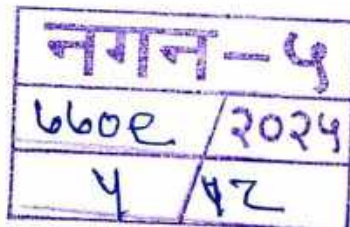 नगन-५
७७०९ / २०२५
५ / ५८